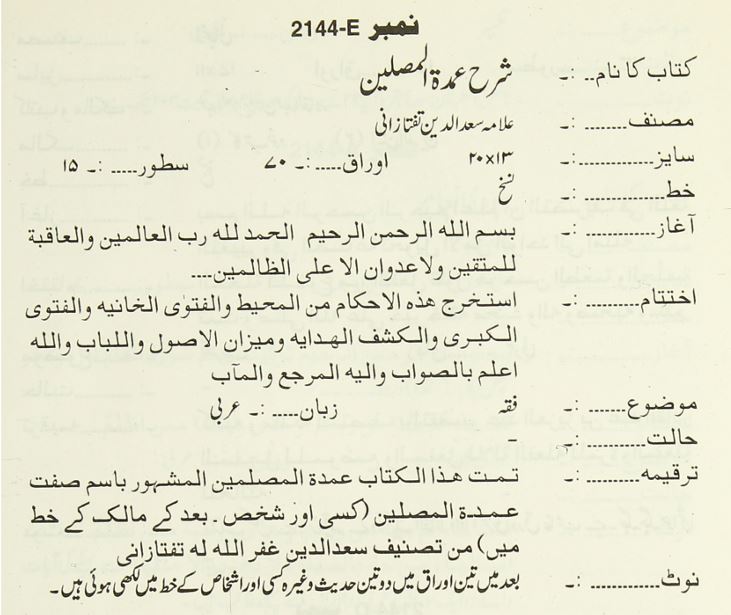 نمبر 2144-E
کتاب کا نام.. :۔ شرح عمدة المصلین
مصنف........ :۔ علامہ سعد الدین تفتازانی
سایز.......... :۔ ۲۰x۱۳ اوراق..... :۔ ۷۰ سطور..... :۔ ۱۵
خط........... :۔ نسخ
آغاز.......... :۔ بسم الله الرحمن الرحيم الحمد لله رب العالمين والعاقبة
للمتقين ولاعدوان الا على الظالمين....
اختتام......... :۔ استخرج هذه الاحكام من المحيط والفتوٰى الخانيه والفتوى
الكبرى والكشف الهدايه وميزان الاصول واللباب والله
اعلم بالصواب واليه المرجع والمآب
موضوع....... :۔ فقہ زبان..... :۔ عربی
حالت......... :۔ -
ترقیمہ......... :۔ تمت هذا الكتاب عمدة المصلمين المشهور باسم صفت
عمدة المصلين (کسی اور شخص ۔ بعد کے مالک کے خط
میں) من تصنيف سعدالدين غفر الله له تفتازانى
نوٹ........... :۔ بعد میں تین اوراق میں دو تین حدیث وغیرہ کسی اور اشخاص کے خط میں لکھی ہوئی ہیں۔